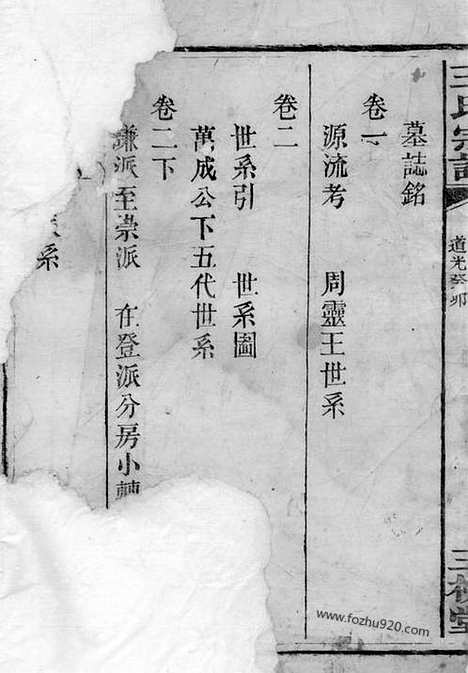 王氏宗譜
道光癸卯
三槐堂
墓誌銘
卷一
源流考 周靈王世系
卷二
世系引 世系圖
萬成公下五代世系
卷二下
謙派至崇派 在登派分房小
系
www.fozhu920.com